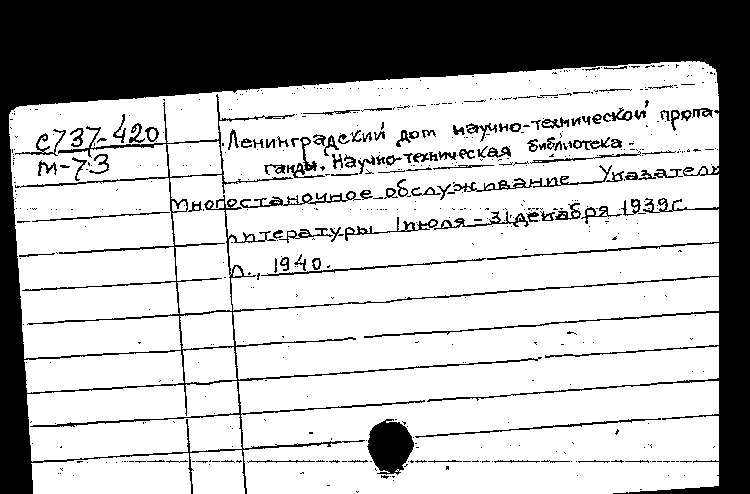 с737-420
m-73
Ленинградский дом научно-технической пропа-
ганды. Научно-техническая библиотека.
Многостаночное обслуживание Указатель
литературы 1 июля - 31 декабря 1939 г.
Л., 1940.